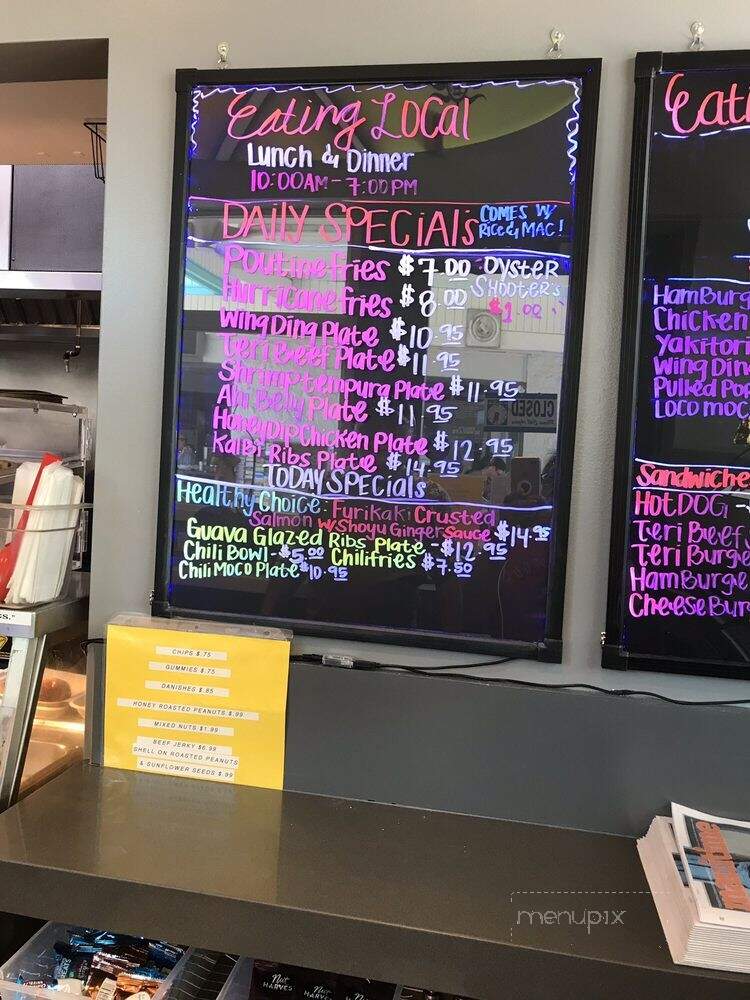 Eating Local
Lunch & Dinner
10:00AM - 7:00PM
DAILY SPECIALS COMES W/
RICE & MAC!
Poutine fries $7.00 OYSTER
SHOOTER'S
Hurricane fries $8.00 $1.00
Wing Ding Plate $10.95
Teri Beef Plate $11.95
Shrimp tempura Plate $11.95
Ahi Belly Plate $11.95
Honey Dip Chicken Plate $12.95
Kalbi Ribs Plate $14.95
TODAY SPECIALS
Healthy Choice: Furikaki Crusted
Salmon w/Shoyu Ginger Sauce $14.95
Guava Glazed Ribs Plate - $12.95
Chili Bowl - $5.00 Chilifries $7.50
Chili Moco Plate $10.95
CLOSED
Eati
HamBurg
Chicken
Yakitori
Wing Din
Pulled Po
Loco moc
Sandwiche
HOTDOG -
Teri Beef
Teri Burge
HamBurge
CheeseBur
CHIPS $.75
GUMMIES $.75
DANISHES $.85
HONEY ROASTED PEANUTS $.99
MIXED NUTS $1.99
BEEF JERKY $6.99
SHELL ON ROASTED PEANUTS
& SUNFLOWER SEEDS $.99
menupix
Nut
HARVES